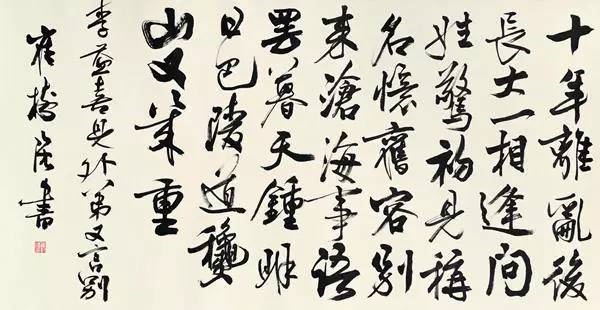 十年離亂後
長大一相逢問
姓驚初見稱
名憶舊容別
来滄海事語
罷暮天鍾明
日巴陵道穐
山又幾重
李益喜見外弟又言別
崔樹書